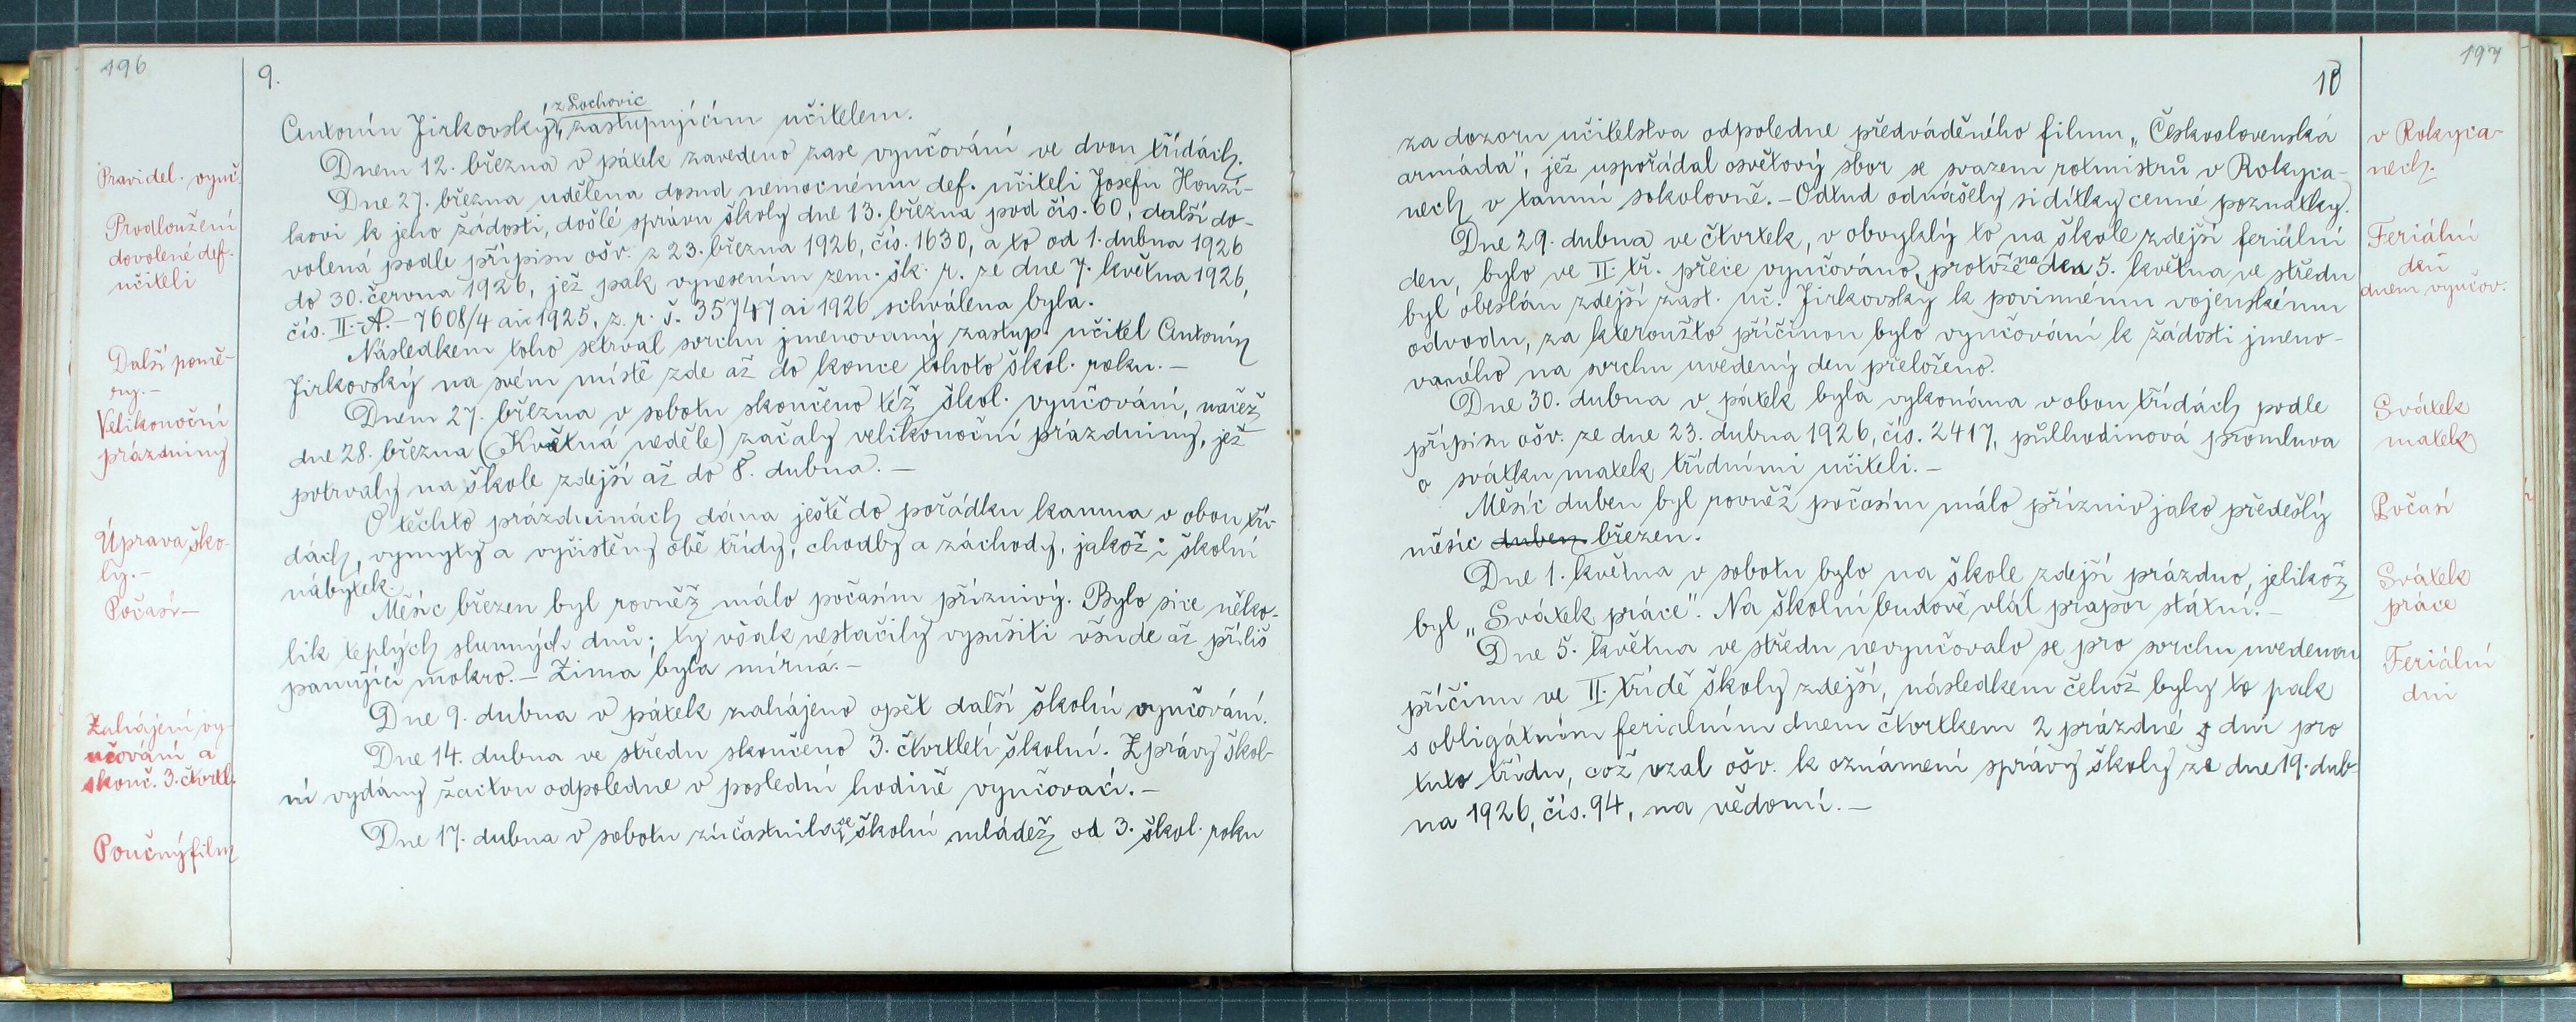 196
9.
Antonín Jirkovský, z Lochovic zastupujícím učitelem.
Pravidel. vyuč.
Dnem 12. března v pátek zavedeno zase vyučování ve dvou třídách.
Dne 27. března udělena dosud nemocnému def. učiteli Josefu Honzí-
Prodloužení
dovolené def.
učiteli
kovi k jeho žádosti, došlé správu školy dne 13. března pod čís. 60, další do-
volená podle přípisu ošv. z 23. března 1926, čís. 1630, a to od 1. dubna 1926
do 30. června 1926, jež pak vynesením zem. šk. r. ze dne 7. května 1926,
čís. II.-A.-7608/4 ai 1925, z. r. š. 35747 ai 1926 schválena byla.
Následkem toho setrval svrchu jmenovaný zastup. učitel Antonín
Další pomě-
ry.-
Jirkovský na svém místě zde až do konce tohoto škol. roku.-
Dnem 27. března v sobotu skončeno též škol. vyučování, načež
Velikonoční
prázdniny
dne 28. března (Květná neděle) začaly velikonoční prázdniny, jež
potrvaly na škole zdejší až do 8. dubna.-
O těchto prázdninách dána ještě do pořádku kamna v obou tří-
Úprava ško-
ly.-
dách, vymyty a vyčistěny obě třídy, chodby a záchody, jakož i školní
nábytek.
Počasí-
Měsíc březen byl rovněž málo počasím příznivý. Bylo sice něko-
lik teplých slunných dnů; ty však nestačily vysušiti všude až příliš
panující mokro.- Zima byla mírná.-
Zahájení vy-
učování a
skonč. 3. čtvrtl.
Dne 9. dubna v pátek zahájeno opět další školní vyučování.
Dne 14. dubna ve středu skončeno 3. čtvrtletí školní. Zprávy škol-
ní vydány žactvu odpoledne v poslední hodině vyučovací.-
Poučný film
Dne 17. dubna v sobotu zúčastnila se školní mládež od 3. škol. roku
197
10
za dozoru učitelstva odpoledne předváděného filmu „Československá
v Rokyca-
nech.
armáda", jež uspořádal osvětový sbor se svazem rotmistrů v Rokyca-
nech v tamní sokolovně.- Odtud odnášely si dítky cenné poznatky.
Dne 29. dubna ve čtvrtek, v obvyklý to na škole zdejší feriální
Feriální
den
dnem vyučov.
den, bylo ve II. tř. přece vyučováno, protože na den 5. května ve středu
byl obeslán zdejší zast. uč. Jirkovský k povinnému vojenskému
odvodu, za kteroužto příčinou bylo vyučování k žádosti jmeno-
vaného na svrchu uvedený den přeloženo.
Dne 30. dubna v pátek byla vykonána v obou třídách podle
Svátek
matek
přípisu ošv. ze dne 23. dubna 1926, čís. 2417, půlhodinová promluva
o svátku matek třídními učiteli.-
Počasí
Měsíc duben byl rovněž počasím málo přízniv jako předešlý
měsíc duben březen.
Dne 1. května v sobotu bylo na škole zdejší prázdno, jelikož
Svátek
práce
byl „Svátek práce". Na školní budově vlál prapor státní.-
Dne 5. května ve středu nevyučovalo se pro svrchu uvedenou
Feriální
dni
příčinu ve II. třídě školy zdejší, následkem čehož byly to pak
s obligátním feriálním dnem čtvrtkem 2 prázdné dni pro
tuto třídu, což vzal ošv. k oznámení správy školy ze dne 19. dub-
na 1926, čís. 94, na vědomí.-